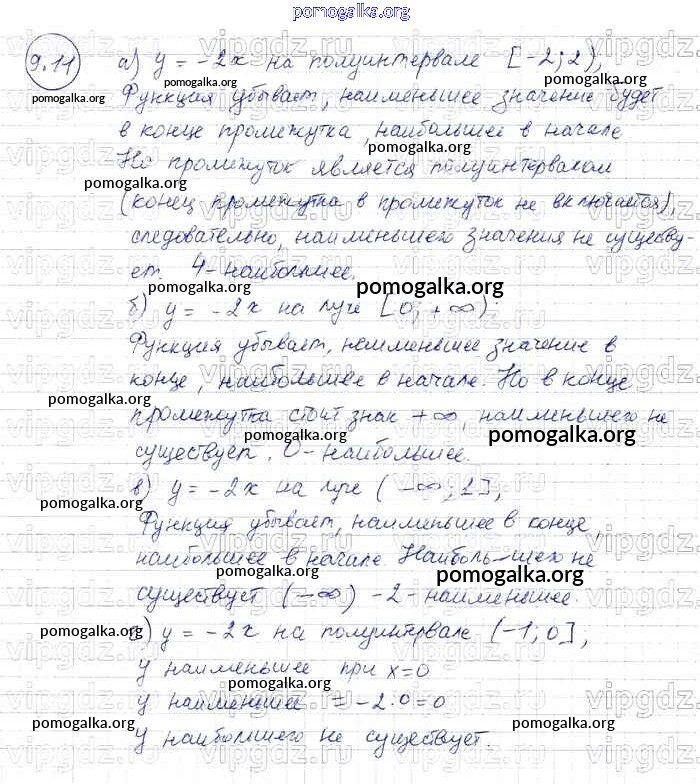 pomogalka.org
9.11 а) y = -2x на полуинтервале [-2; 2),
pomogalka.org
pomogalka.org
Функция убывает, наименьшее значение будет
в конце промежутка, наибольшее в начале
pomogalka.org
Но промежуток является полуинтервалом
pomogalka.org
(конец промежутка в промежуток не включается),
следовательно, наименьшего значения не существу-
ет. 4-наибольшее.
pomogalka.org
pomogalka.org
б) y = -2x на луче [0; +∞):
pomogalka.org
Функция убывает, наименьшее значение в
конце, наибольшее в начале. Но в конце
pomogalka.org
промежутка стоит знак +∞, наименьшего не
pomogalka.org
pomogalka.org
существует. 0-наибольшее.
в) y = -2x на луче (-∞; 1],
pomogalka.org
Функция убывает, наименьшее в конце,
наибольшее в начале. Наиболь-шего не
pomogalka.org
pomogalka.org
существует (-∞) -2-наименьшее.
г) y = -2x на полуинтервале (-1; 0],
pomogalka.org
pomogalka.org
y наименьшее при x=0
pomogalka.org
y наименьшее = -2·0=0
pomogalka.org
pomogalka.org
y наибольшего не существует.
vipgdz.ru